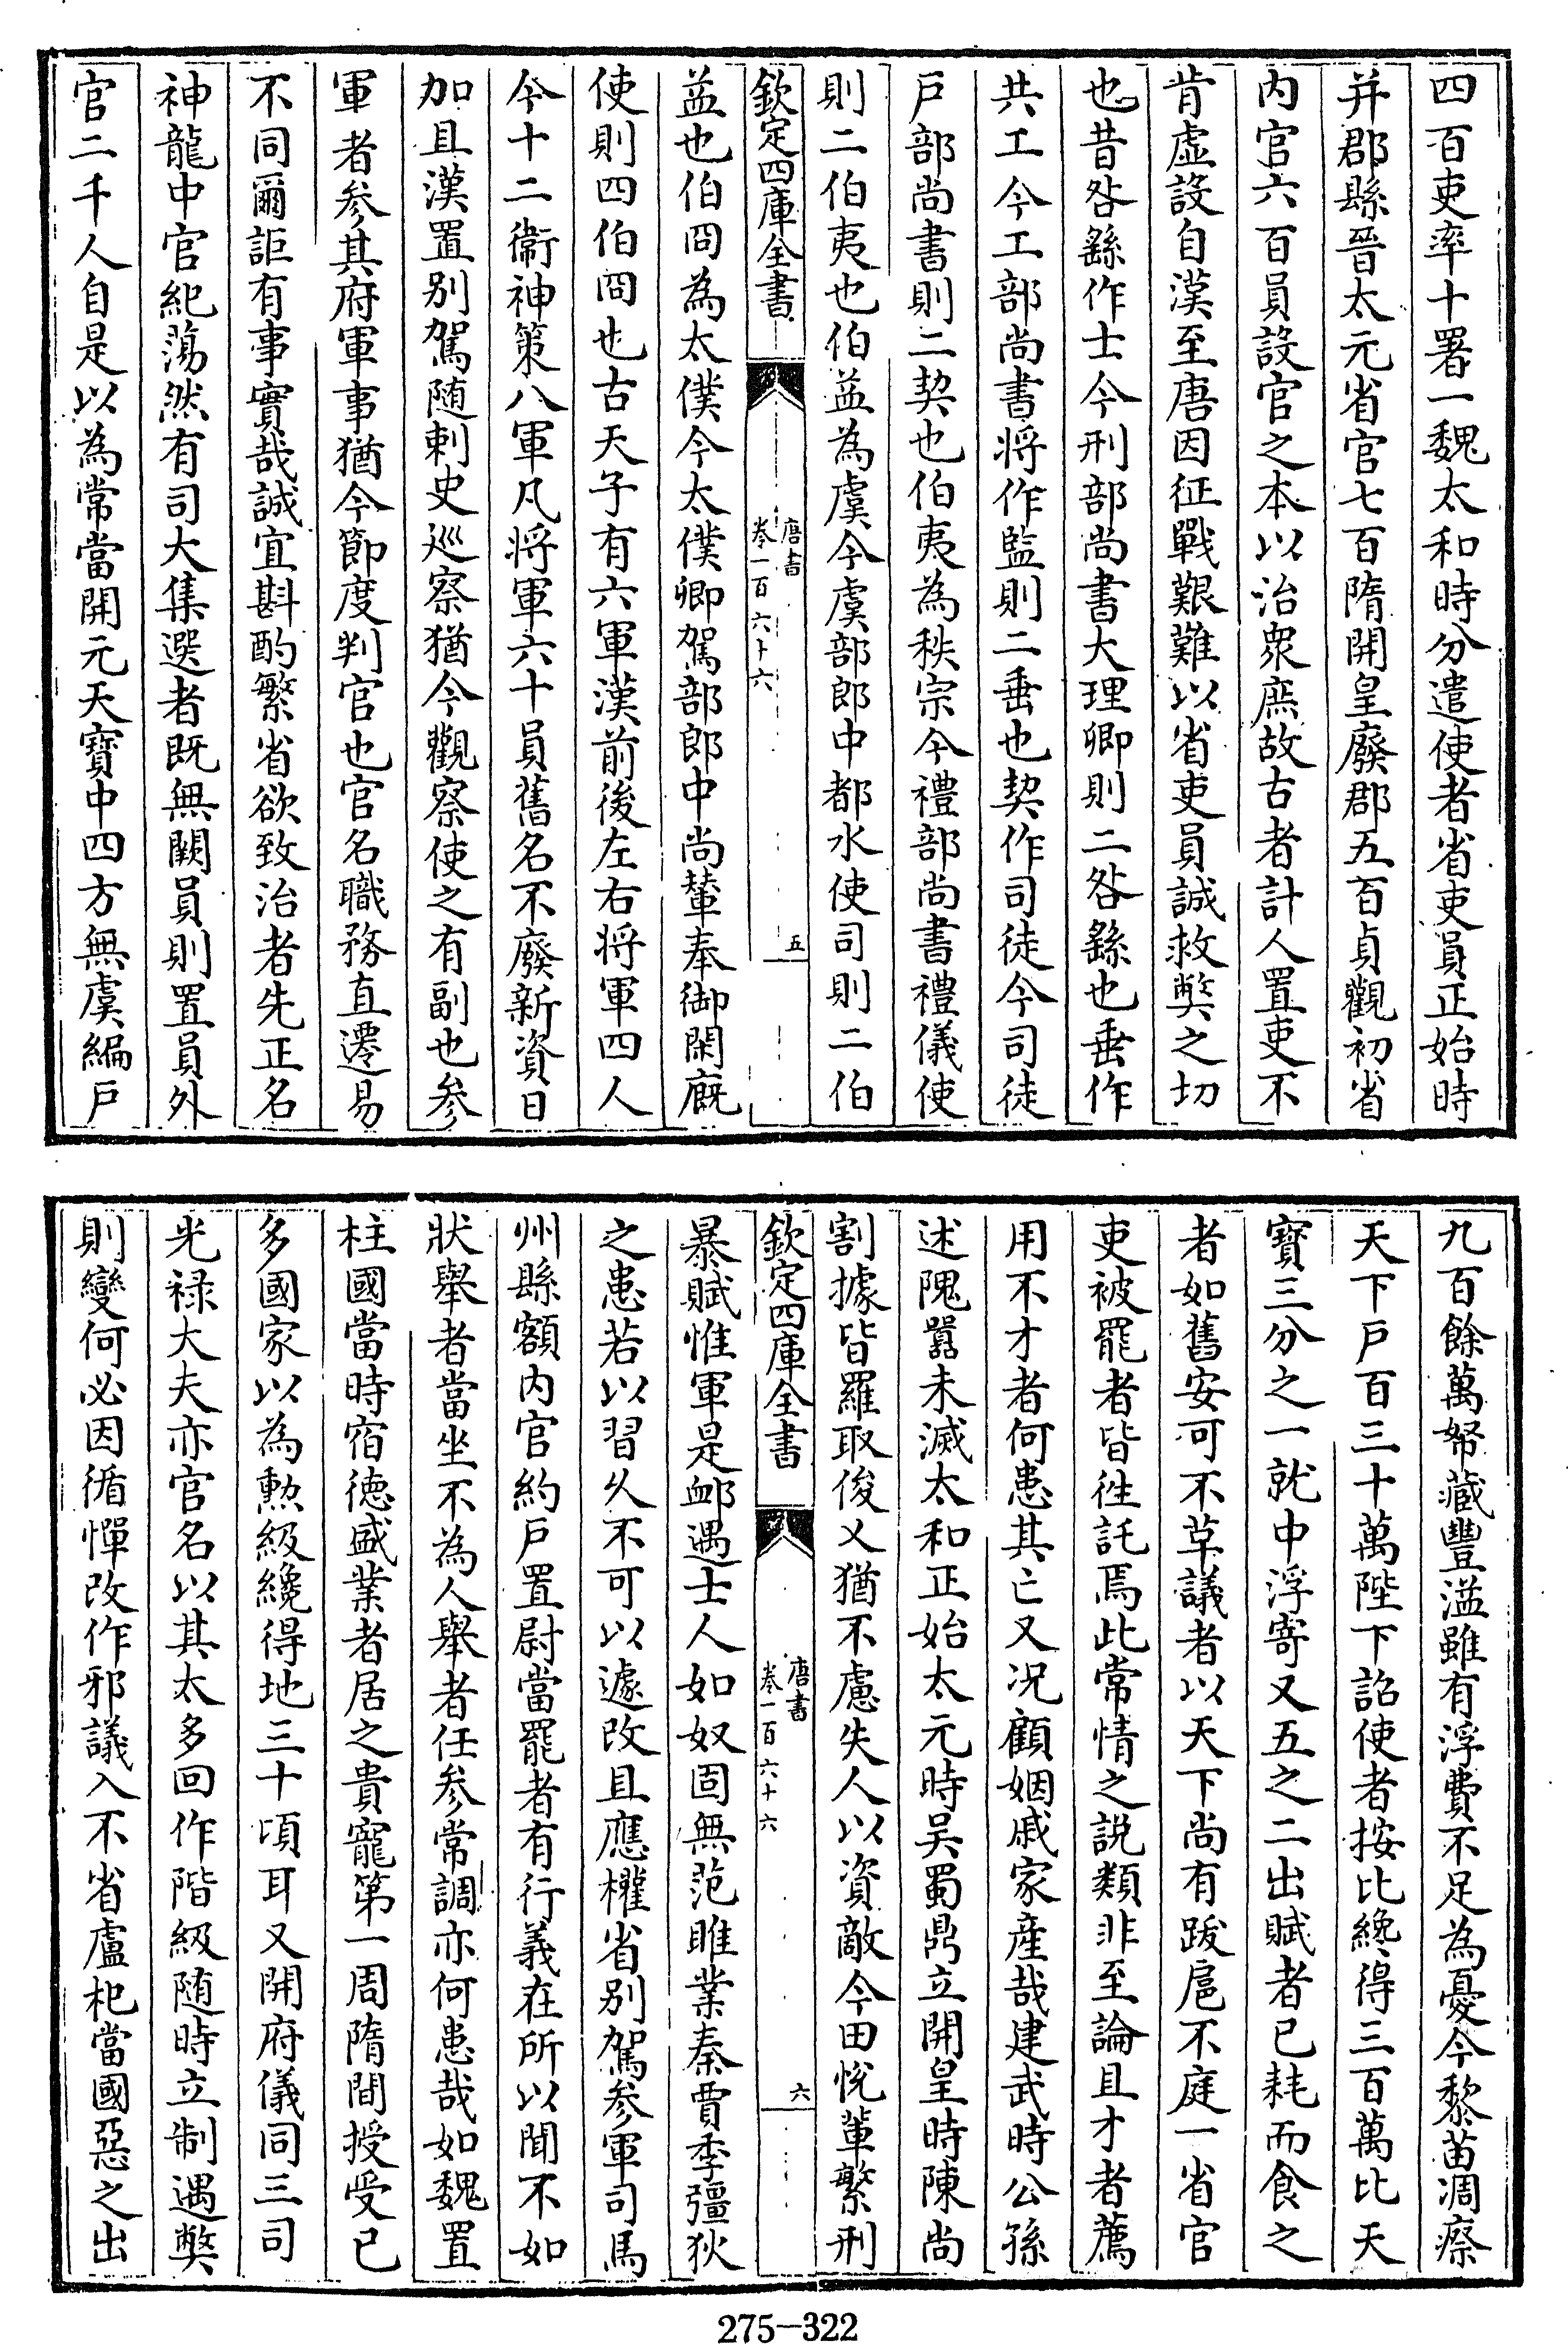 四百吏率十署一魏太和時分遣使者省吏員正始時
并郡縣晉太元省官七百隋開皇廢郡五百貞觀初省
内官六百員設官之本以治衆庶故古者計人置吏不
肯虛設自漢至唐因征戰艱難以省吏員誠救獘之切
也昔咎繇作士今刑部尚書大理卿則二咎繇也垂作
共工今工部尚書將作監則二垂也契作司徒今司徒
戶部尚書則二契也伯夷為秩宗今禮部尚書禮儀使
則二伯夷也伯益為虞今虞部郎中都水使司則二伯
欽定四庫全書
唐書
卷一百六十六
五
益也伯冏為太僕今太僕卿駕部郎中尚輦奉御閑廐
使則四伯冏也古天子有六軍漢前後左右將軍四人
今十二衞神策八軍凡將軍六十員舊名不廢新資日
加且漢置别駕随刺史巡察猶今觀察使之有副也參
軍者參其府軍事猶今節度判官也官名職務直遷易
不同爾詎有事實哉誠宜斟酌繁省欲致治者先正名
神龍中官紀蕩然有司大集選者既無闕員則置員外
官二千人自是以為常當開元天寶中四方無虞編戶
九百餘萬帑藏豐溢雖有浮費不足為憂今黎苗凋瘵
天下戶百三十萬陛下詔使者按比纔得三百萬比天
寶三分之一就中浮寄又五之二出賦者已耗而食之
者如舊安可不革議者以天下尚有跋扈不庭一省官
吏被罷者皆徃託焉此常情之説類非至論且才者薦
用不才者何患其亡又况顧姻戚家産哉建武時公孫
述隗囂未滅太和正始太元時吴蜀鼎立開皇時陳尚
割據皆羅取俊乂猶不慮失人以資敵今田恱輩繁刑
欽定四庫全書
唐書
卷一百六十六
六
暴賦惟軍是衈遇士人如奴固無范睢業秦賈季彊狄
之患若以習久不可以遽改且應權省别駕參軍司馬
州縣額内官約戶置尉當罷者有行義在所以聞不如
狀舉者當坐不為人舉者任參常調亦何患哉如魏置
柱國當時宿徳盛業者居之貴寵第一周隋間授受已
多國家以為勲級纔得地三十頃耳又開府儀同三司
光禄大夫亦官名以其太多回作階級随時立制遇獘
則變何必因循憚改作邪議入不省盧杞當國惡之出
275-322